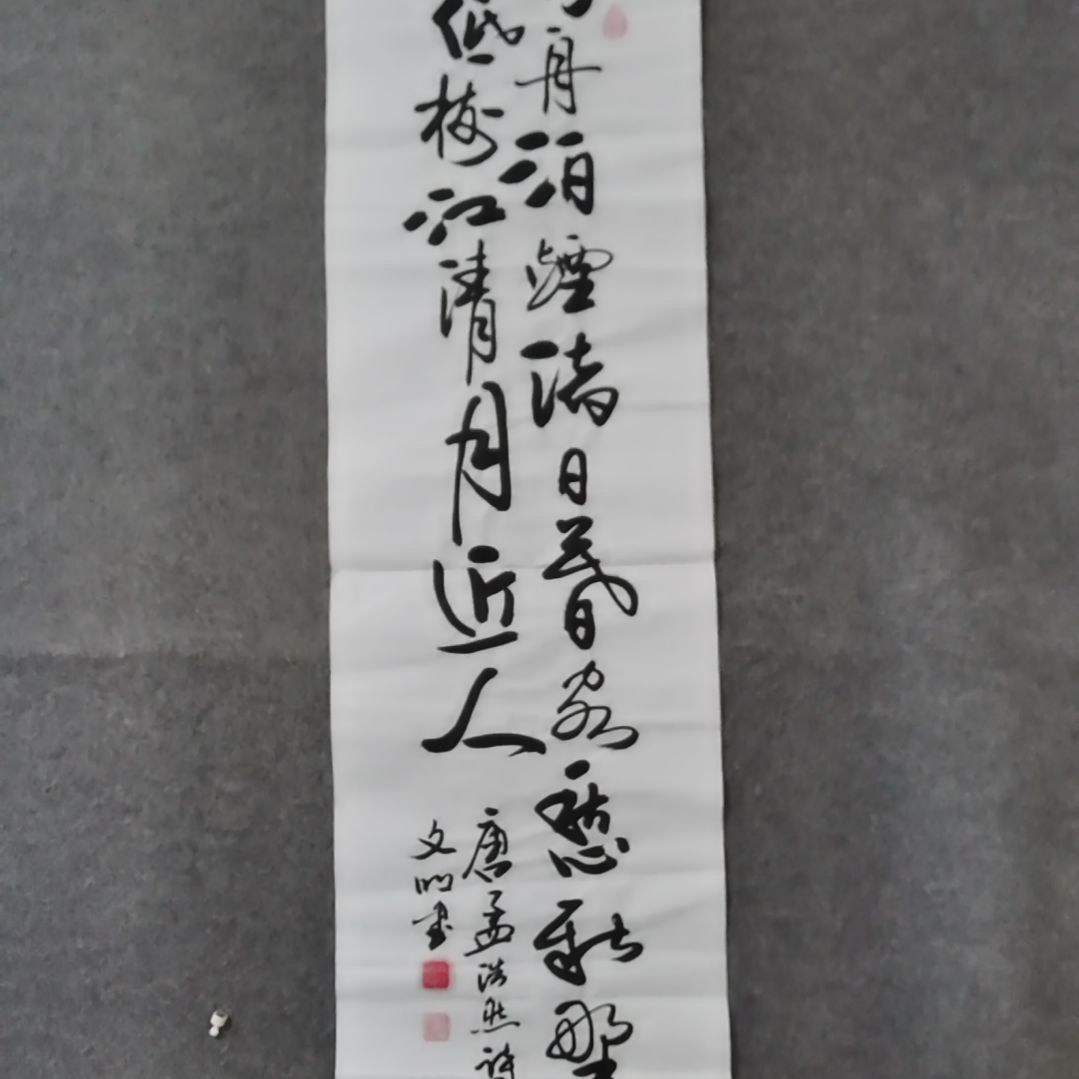 舟泊煙渚日暮客愁新野
低樹江清月近人
唐孟浩然詩
文明書